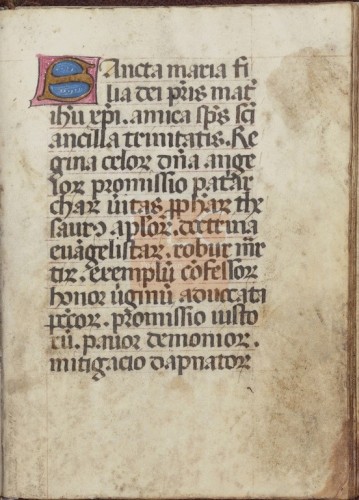 Sancta maria fi
lia dei pr̃is mat̃
ihũ xp̃i. amica sp̃s sc̃i
ancilla trinitatis. Re
gina celoꝝ dña ange
loꝝ promissio patar
charꝝ ṽitas ꝓpharꝝ the
saurꝰ apl̃oꝝ. doctrina
euãgelistarꝝ. robur mr̃
tirꝝ. exemplũ cõfessoꝝ
honor ũginũ aduocati
pcc̃oꝝ. promissio iusto
rũ. pauor demonioꝝ.
mitigacio dapnatoꝝ